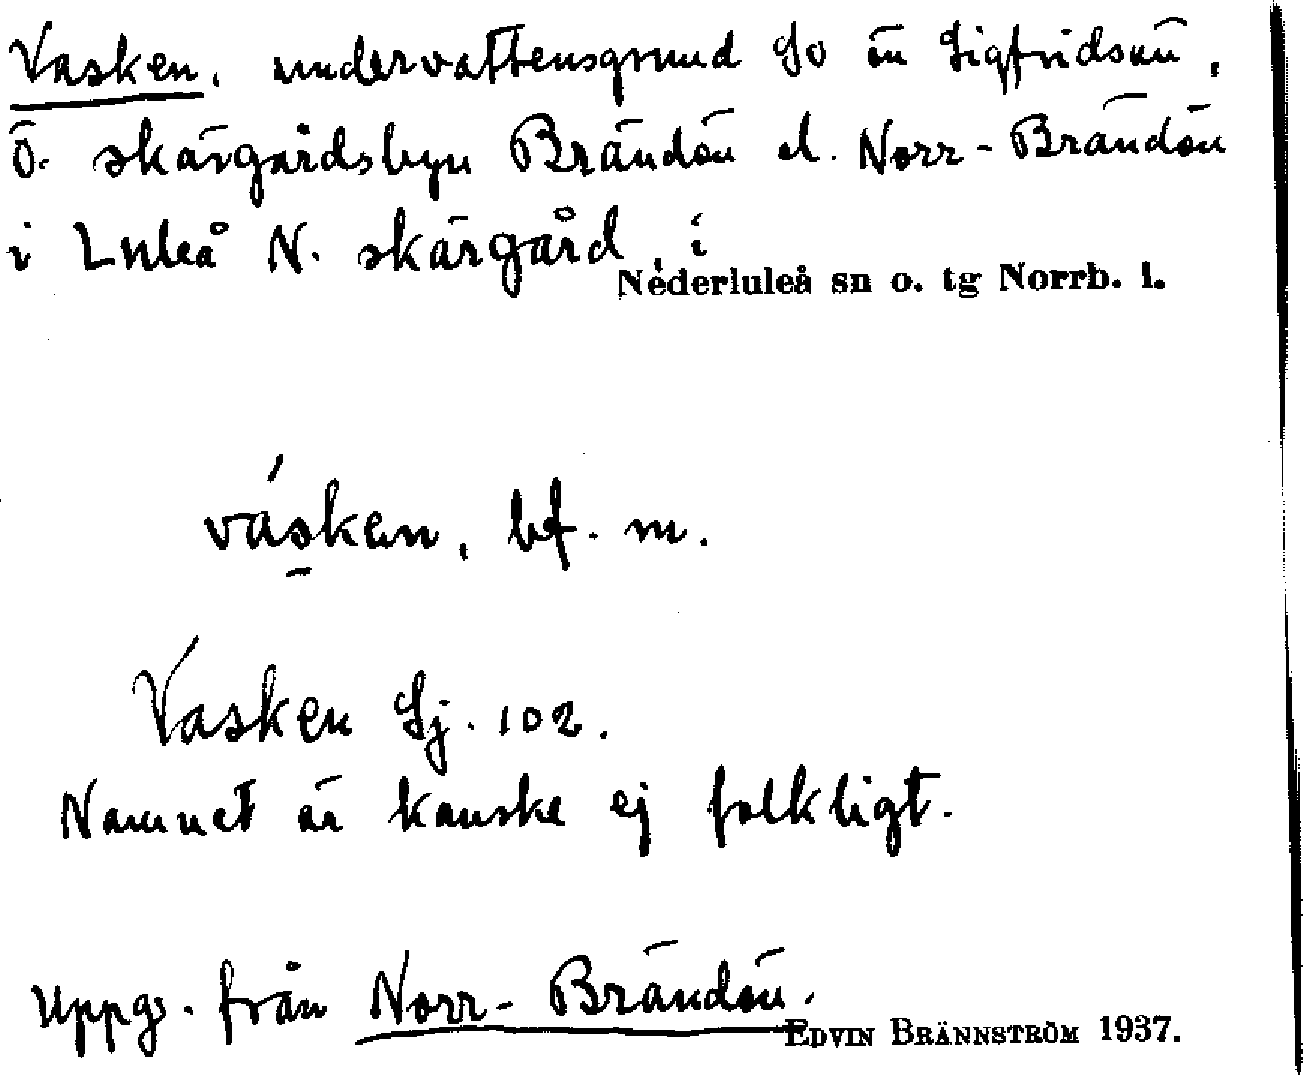 Vasken, undervattensgrund SO ön Sigfridsön,
Ö. skärgårdsbyn Brändön el. Norr-Brändön
i Luleå N. skärgård, i
Nederluleå sn o. tg Norrb. l.
vásken, bf. m.
Vasken Sj. 102.
Namnet är kanske ej folkligt.
Uppg. från Norr-Brändön.
EDVIN BRÄNNSTRÖM 1937.